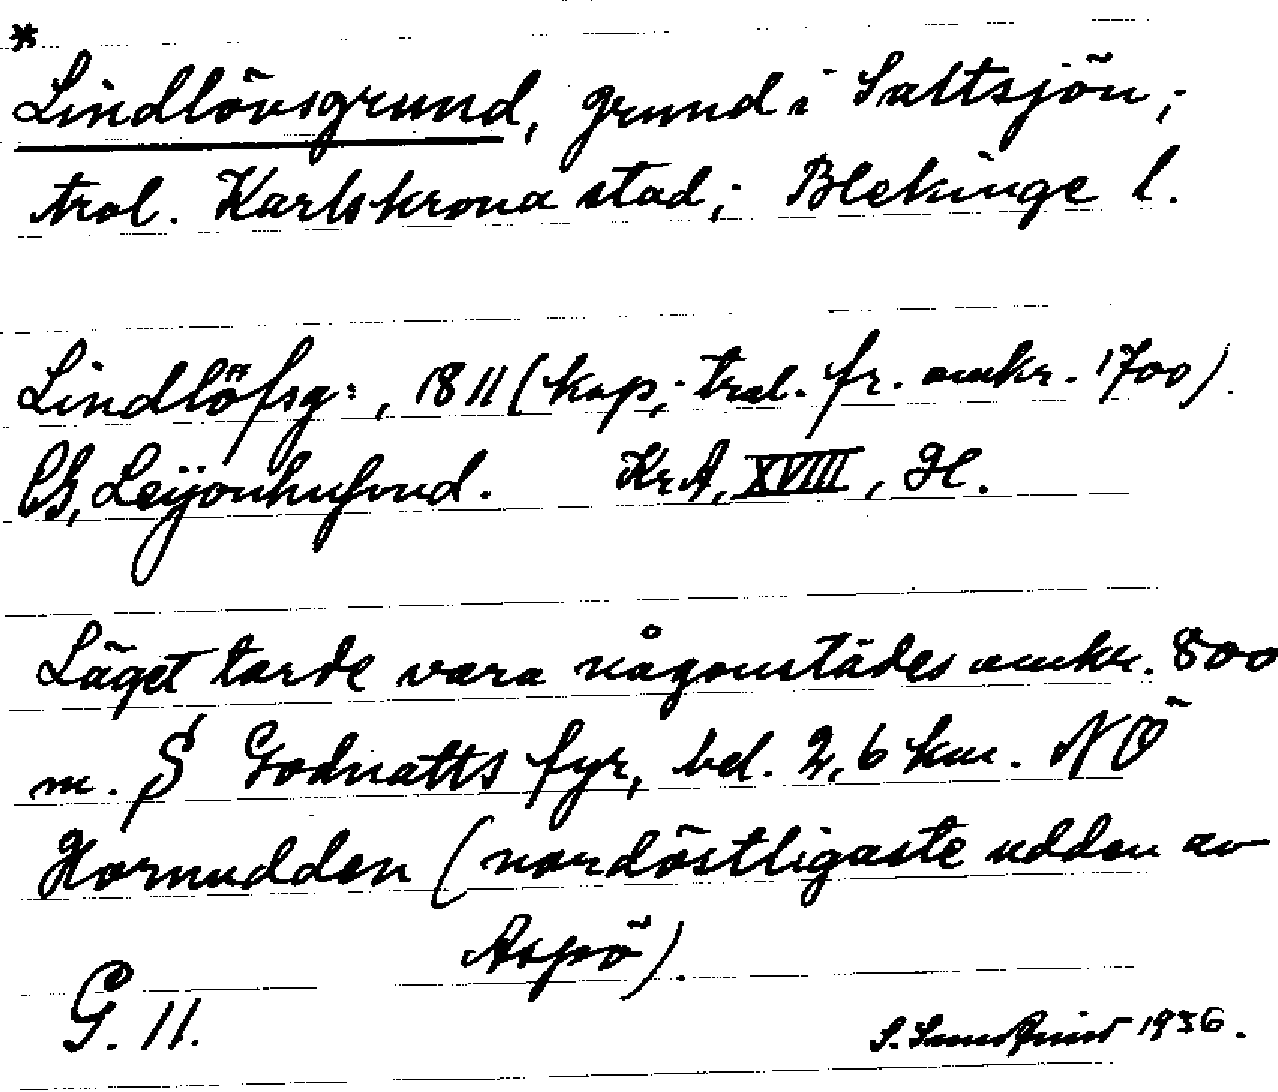 *
Lindlövsgrund, grund i Saltsjön;
trol. Karlskrona stad; Blekinge l.
Lindlöfsg:, 1811 (kop; trol. fr. omkr. 1700).
CG, Leijonhufvud. KrA, XVIII, H.
Läget torde vara någonstädes omkr. 800
m. S Godnatts fyr, bel. 2,6 km. NÖ
Hornudden (nordöstligaste udden av
Aspö).
G. 11.
S. 1936.